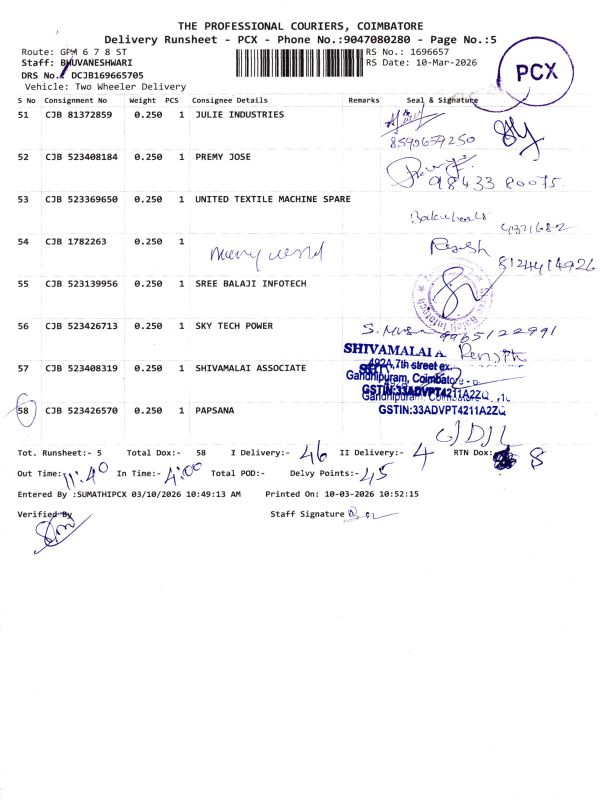 THE PROFESSIONAL COURIERS, COIMBATORE
Delivery Runsheet - PCX - Phone No.:9047080280 - Page No.:5
Route: GPM 6 7 8 ST RS No.: 1696657
Staff: BHUVANESHWARI RS Date: 10-Mar-2026
DRS No.: DCJB169665705
PCX
Vehicle: Two Wheeler Delivery
S No Consignment No Weight PCS Consignee Details Remarks Seal & Signature
51 CJB 81372859 0.250 1 JULIE INDUSTRIES
8590659250
52 CJB 523408184 0.250 1 PREMY JOSE
98433 80075
53 CJB 523369650 0.250 1 UNITED TEXTILE MACHINE SPARE
54 CJB 1782263 0.250 1
8124414926
55 CJB 523139956 0.250 1 SREE BALAJI INFOTECH
56 CJB 523426713 0.250 1 SKY TECH POWER
9965122991
SHIVAMALAI A.
57 CJB 523408319 0.250 1 SHIVAMALAI ASSOCIATE
492A,7th street ex.
Gandhipuram, Coimbatore
GSTIN:33ADVPT4211A2ZQ
58 CJB 523426570 0.250 1 PAPSANA
GSTIN:33ADVPT4211A2ZQ
Tot. Runsheet:- 5 Total Dox:- 58 I Delivery:- 46 II Delivery:- 4 RTN Dox: 8
Out Time: 11:40 In Time:- 4:00 Total POD:- Delvy Points:- 45
Entered By :SUMATHIPCX 03/10/2026 10:49:13 AM Printed On: 10-03-2026 10:52:15
Verified By Staff Signature